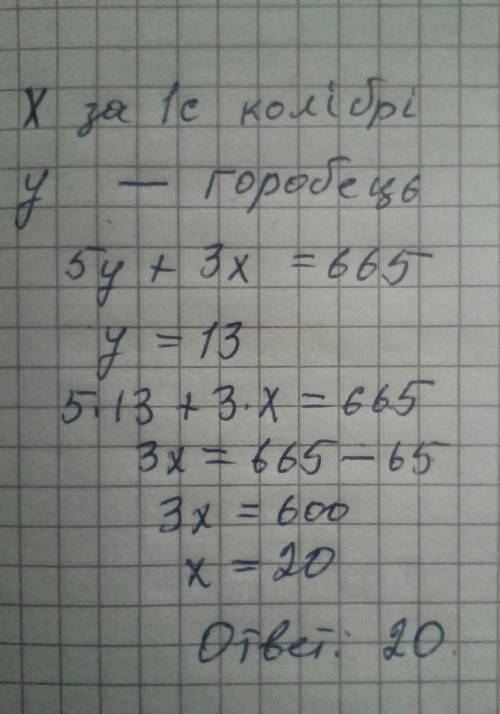 X за 1с колібрі
y — горобець
5y + 3x = 665
y = 13
5·13 + 3·x = 665
3x = 665 - 65
3x = 600
x = 20
Ответ: 20.